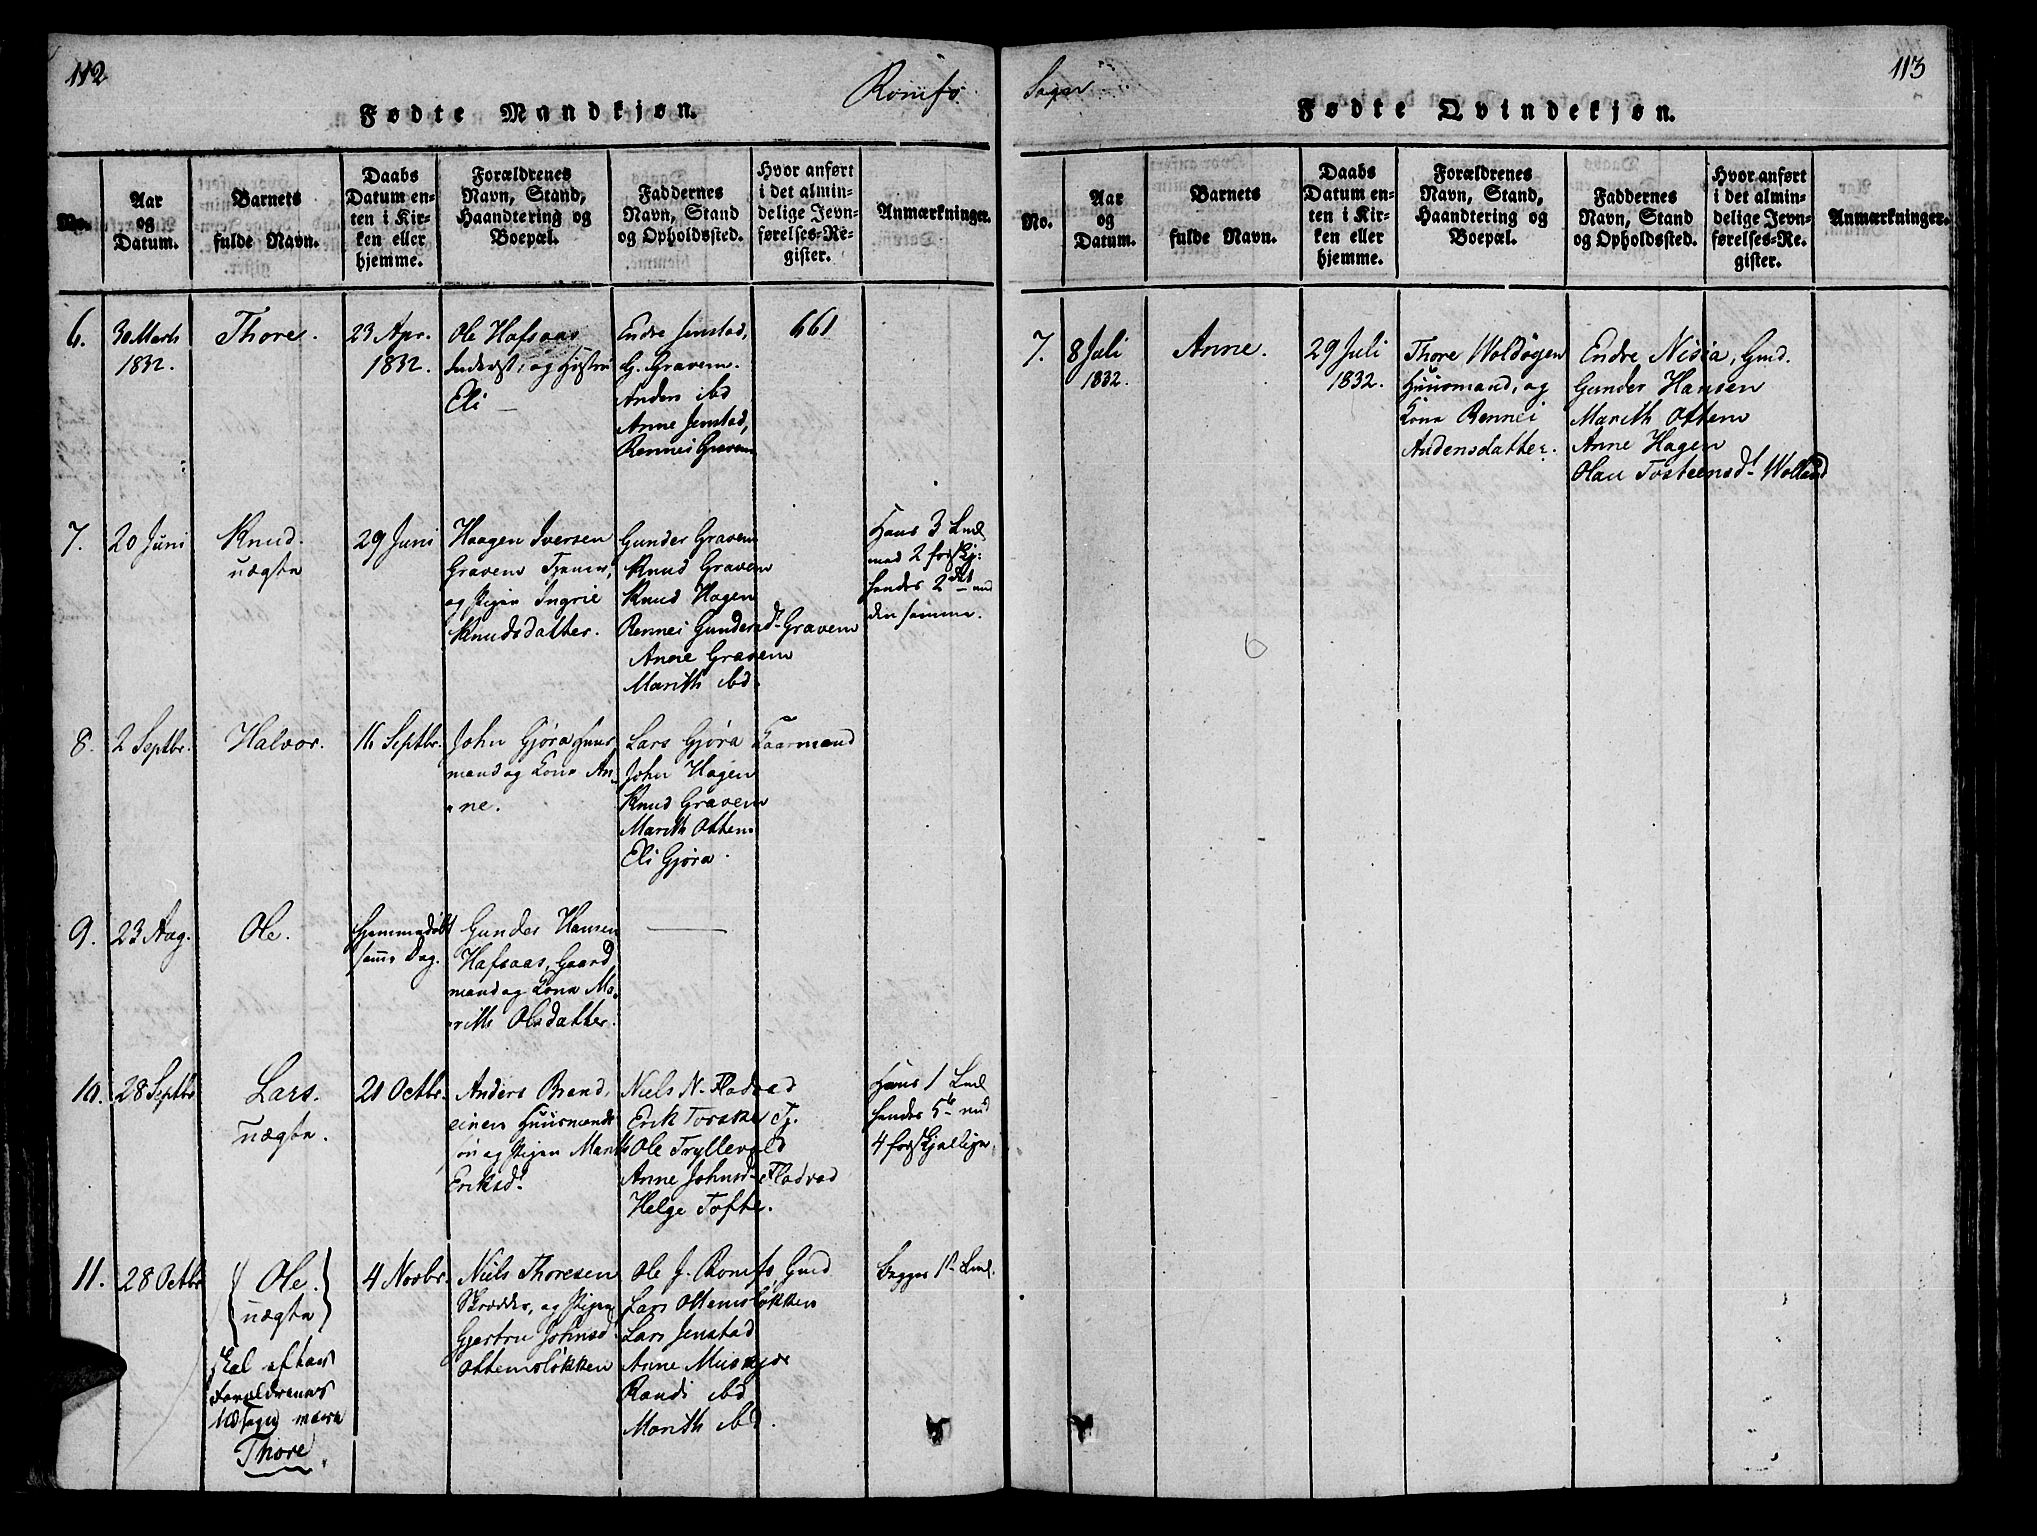 112
Romfo
Fødte Mandkjøn.
No.
Aar
og
Datum.
Barnets
fulde Navn.
Daabs
Datum en-
ten i Kir-
ken eller
hjemme.
Forældrenes
Navn, Stand,
Haandtering og
Boepæl.
Faddernes
Navn, Stand
og Opholdssted.
Hvor anført
i det almin-
delige Jevn-
førelses-Re-
gister.
Anmærkninger.
6.
30 Marts
1832.
Thore.
23 Apr.
1832.
Ole Hafsaas
Inderst, og Hustru
Eli
Endre Jenstad,
G. Gravem.
Anders ibd
Anne Jenstad,
Rennei Gravem
661
7.
20 Juni
Knud.
uægte
29 Juni
Haagen Iversen
Gravem Tjener,
og Pigen Ingrie
Knudsdatter.
Gunder Gravem
Knud Gravem
Knud Hagen
Rennei Gundersd. Gravem
Anne Gravem
Marith ibd.
Hans 3 Lml
med 2 forskj:
hendes 2det med
den samme.
8.
2 Septbr.
Halvor.
16 Septbr.
John Gjøra Huus-
mand og Kone An-
ne.
Lars Gjøra Gaarmand
John Hagen
Knud Gravem
Marith Ottem
Eli Gjøra.
9.
23 Aug.
Ole.
hjemmedøbt
samme Dag.
Gunder Hansen
Hafsaas, Gaard
mand og Kone Ma-
rith Olsdatter.
10.
28 Septbr
Lars.
uægte.
21 Octbr.
Anders Brand,
einen Huusmands
søn og Pigen Marith
Eriksd.
Niels N. Fladvad
Erik Torske Tj.
Ole Tryllevold
Anne Johnsd. Fladvad
Helge Tofte.
Hans 1 Lml
hendes 5te med
4 forskjellige.
11.
28 Octbr
Ole.
uægte
skal efter
Forældrenes
Udsagn være
Thore.
4 Novbr.
Niels Thoresen
Skrædder, og Pigen
Gjertru Johnsd.
Ottemsløkken
Ole J. Romfo, Gmd
Lars Ottemsløkken
Lars Jenstad
Anne Musgjer
Randi ibd
Marith ibd.
Begges 1ste Lml.
113
Sogn
Fødte Qvindekjøn.
No.
Aar
og
Datum.
Barnets
fulde Navn.
Daabs
Datum en-
ten i Kir-
ken eller
hjemme.
Forældrenes
Navn, Stand,
Haandtering og
Boepæl.
Faddernes
Navn, Stand
og Opholdssted.
Hvor anført
i det almin-
delige Jevn-
førelses-Re-
gister.
Anmærkninger.
7.
8 Juli
1832.
Anne.
29 Juli
1832.
Thore Woldøgen
Huusmand, og
Kone Rennei
Audensdatter.
Endre Nisia, Gmd.
Gunder Hansen
Marith Ottem
Anne Hagen
Olau Tosteensdt Wolland